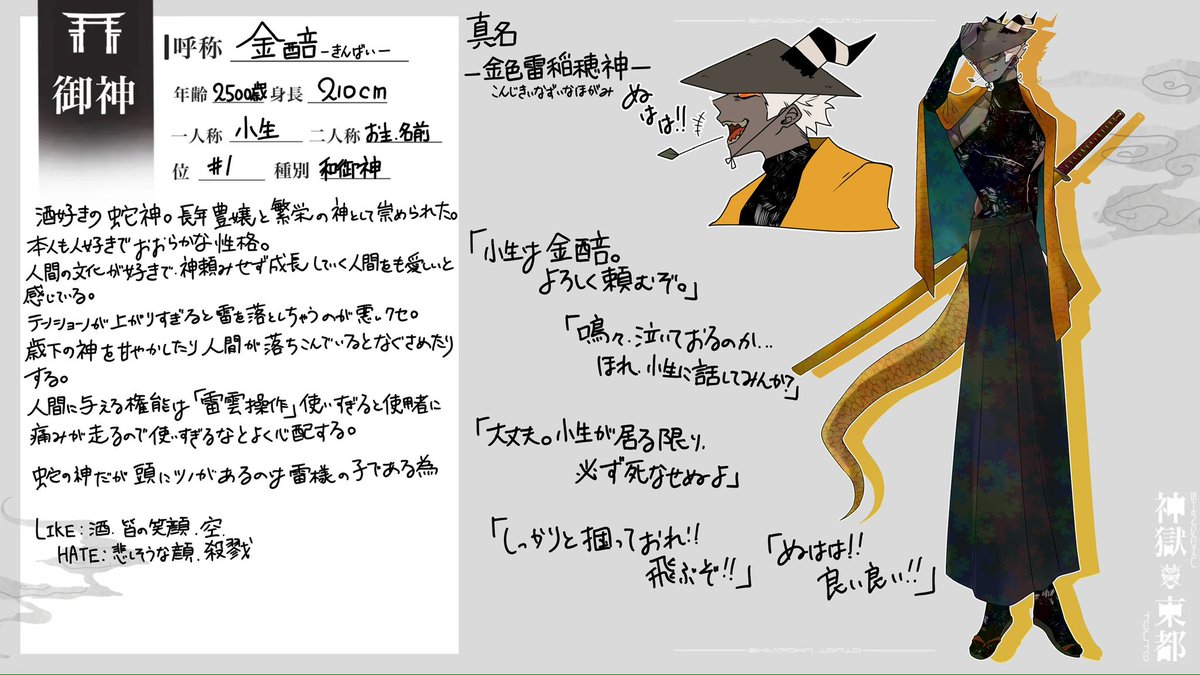 御神
呼称 金醅 -きんばい-
年齢 2500歳 身長 210cm
一人称 小生 二人称 お主.名前
位 #1 種別 和御神
酒好きの蛇神。長年豊嬢と繁栄の神として崇められた。
本人も人好きでおおらかな性格。
人間の文化が好きで、神頼みせず成長していく人間をも愛しいと
感じている。
テンションが上がりすぎると雷を落としちゃうのが悪いクセ。
歳下の神を甘やかしたり人間が落ちこんでいるとなぐさめたり
する。
人間に与える権能は「雷雲操作」使いすぎると使用者に
痛みが走るので使いすぎるなとよく心配する。
蛇の神だが頭にツノがあるのは雷様の子である為
LIKE:酒.皆の笑顔.空.
HATE:悲しそうな顔.殺戮
真名
ー金色雷稲穂神ー
こんじきいなずいなほがみ
ぬはは!!
「小生は金醅。
よろしく頼むぞ。」
「嗚々、泣いておるのか...
ほれ、小生に話してみんか?」
「大丈夫。小生が居る限り、
必ず死なせぬよ」
「しっかりと掴っておれ!!
飛ぶぞ!!」
「ぬはは!!
良い良い!!」
神獄
東都
TOUTO